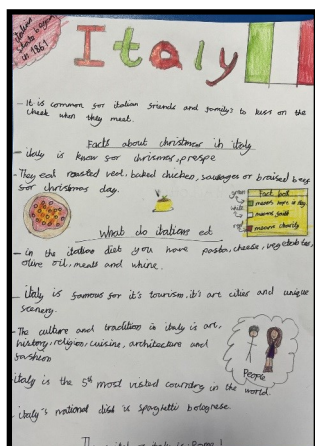 italian
state began
in 1861
Italy
- It is common for italian friends and family to kiss on the
cheek when they meet.
Facts about christmas in italy
- italy is know for chrismas, prespe
- They eat roasted veal, baked chicken, sausages or braised beef
for christmas day.
Fact box
green
means hope or joy
white
means faith
red
means charity
What do italians eat
- in the italian diet you have pasta, cheese, vegetables,
olive oil, meats and whine.
- italy is famous for it's tourism, it's art cities and unique
scenery.
- The culture and tradition in italy is art,
history, religion, cuisine, architecture and
fashion
People
- italy is the 5th most visted country in the world.
- italy's national dish is spaghetti bolognese.